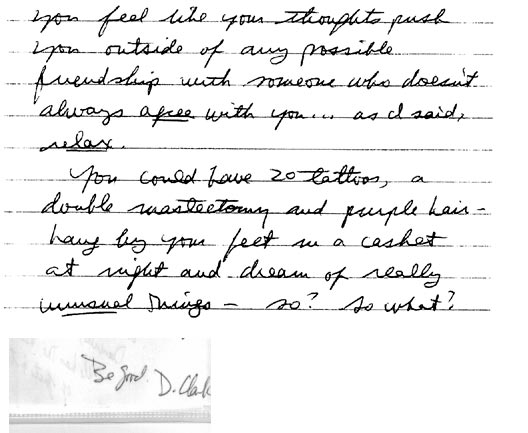 you feel like your thoughts push
you outside of any possible
friendship with someone who doesn't
always agree with you... as I said,
relax.
You could have 20 tattoos, a
double mastectomy and purple hair -
hang by your feet in a casket
at night and dream of really
unusual things - so? So what?
Be good. D. Clark